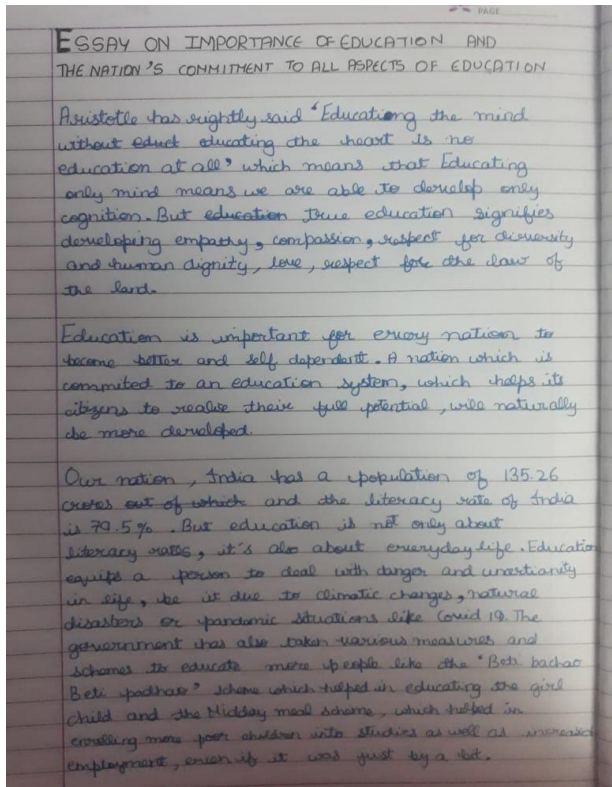 PAGE
ESSAY ON IMPORTANCE OF EDUCATION AND
THE NATION'S COMMITMENT TO ALL ASPECTS OF EDUCATION
Aristotle has rightly said 'Educationg the mind
without educt educating the heart is no
education at all' which means that Educating
only mind means we are able to develop only
cognition. But education true education signifies
developing empathy, compassion, respect for diversity
and human dignity, love, respect for the law of
the land.
Education is important for every nation to
become better and self dependent. A nation which is
commited to an education system, which helps its
citizens to realise their full potential, will naturally
be more developed.
Our nation, India has a population of 135.26
crores out of which and the literacy rate of India
is 79.5%. But education is not only about
literacy rates, it's also about everyday life. Education
equips a person to deal with danger and uncertianity
in life, be it due to climatic changes, natural
disasters or pandamic situations like Covid 19. The
government has also taken various measures and
schemes to educate more people like the "Beti bachao
Beti padhao" scheme which helped in educating the girl
child and the Midday meal scheme, which helped in
enrolling more poor children into studies as well as increased
employment, even if it was just by a bit.